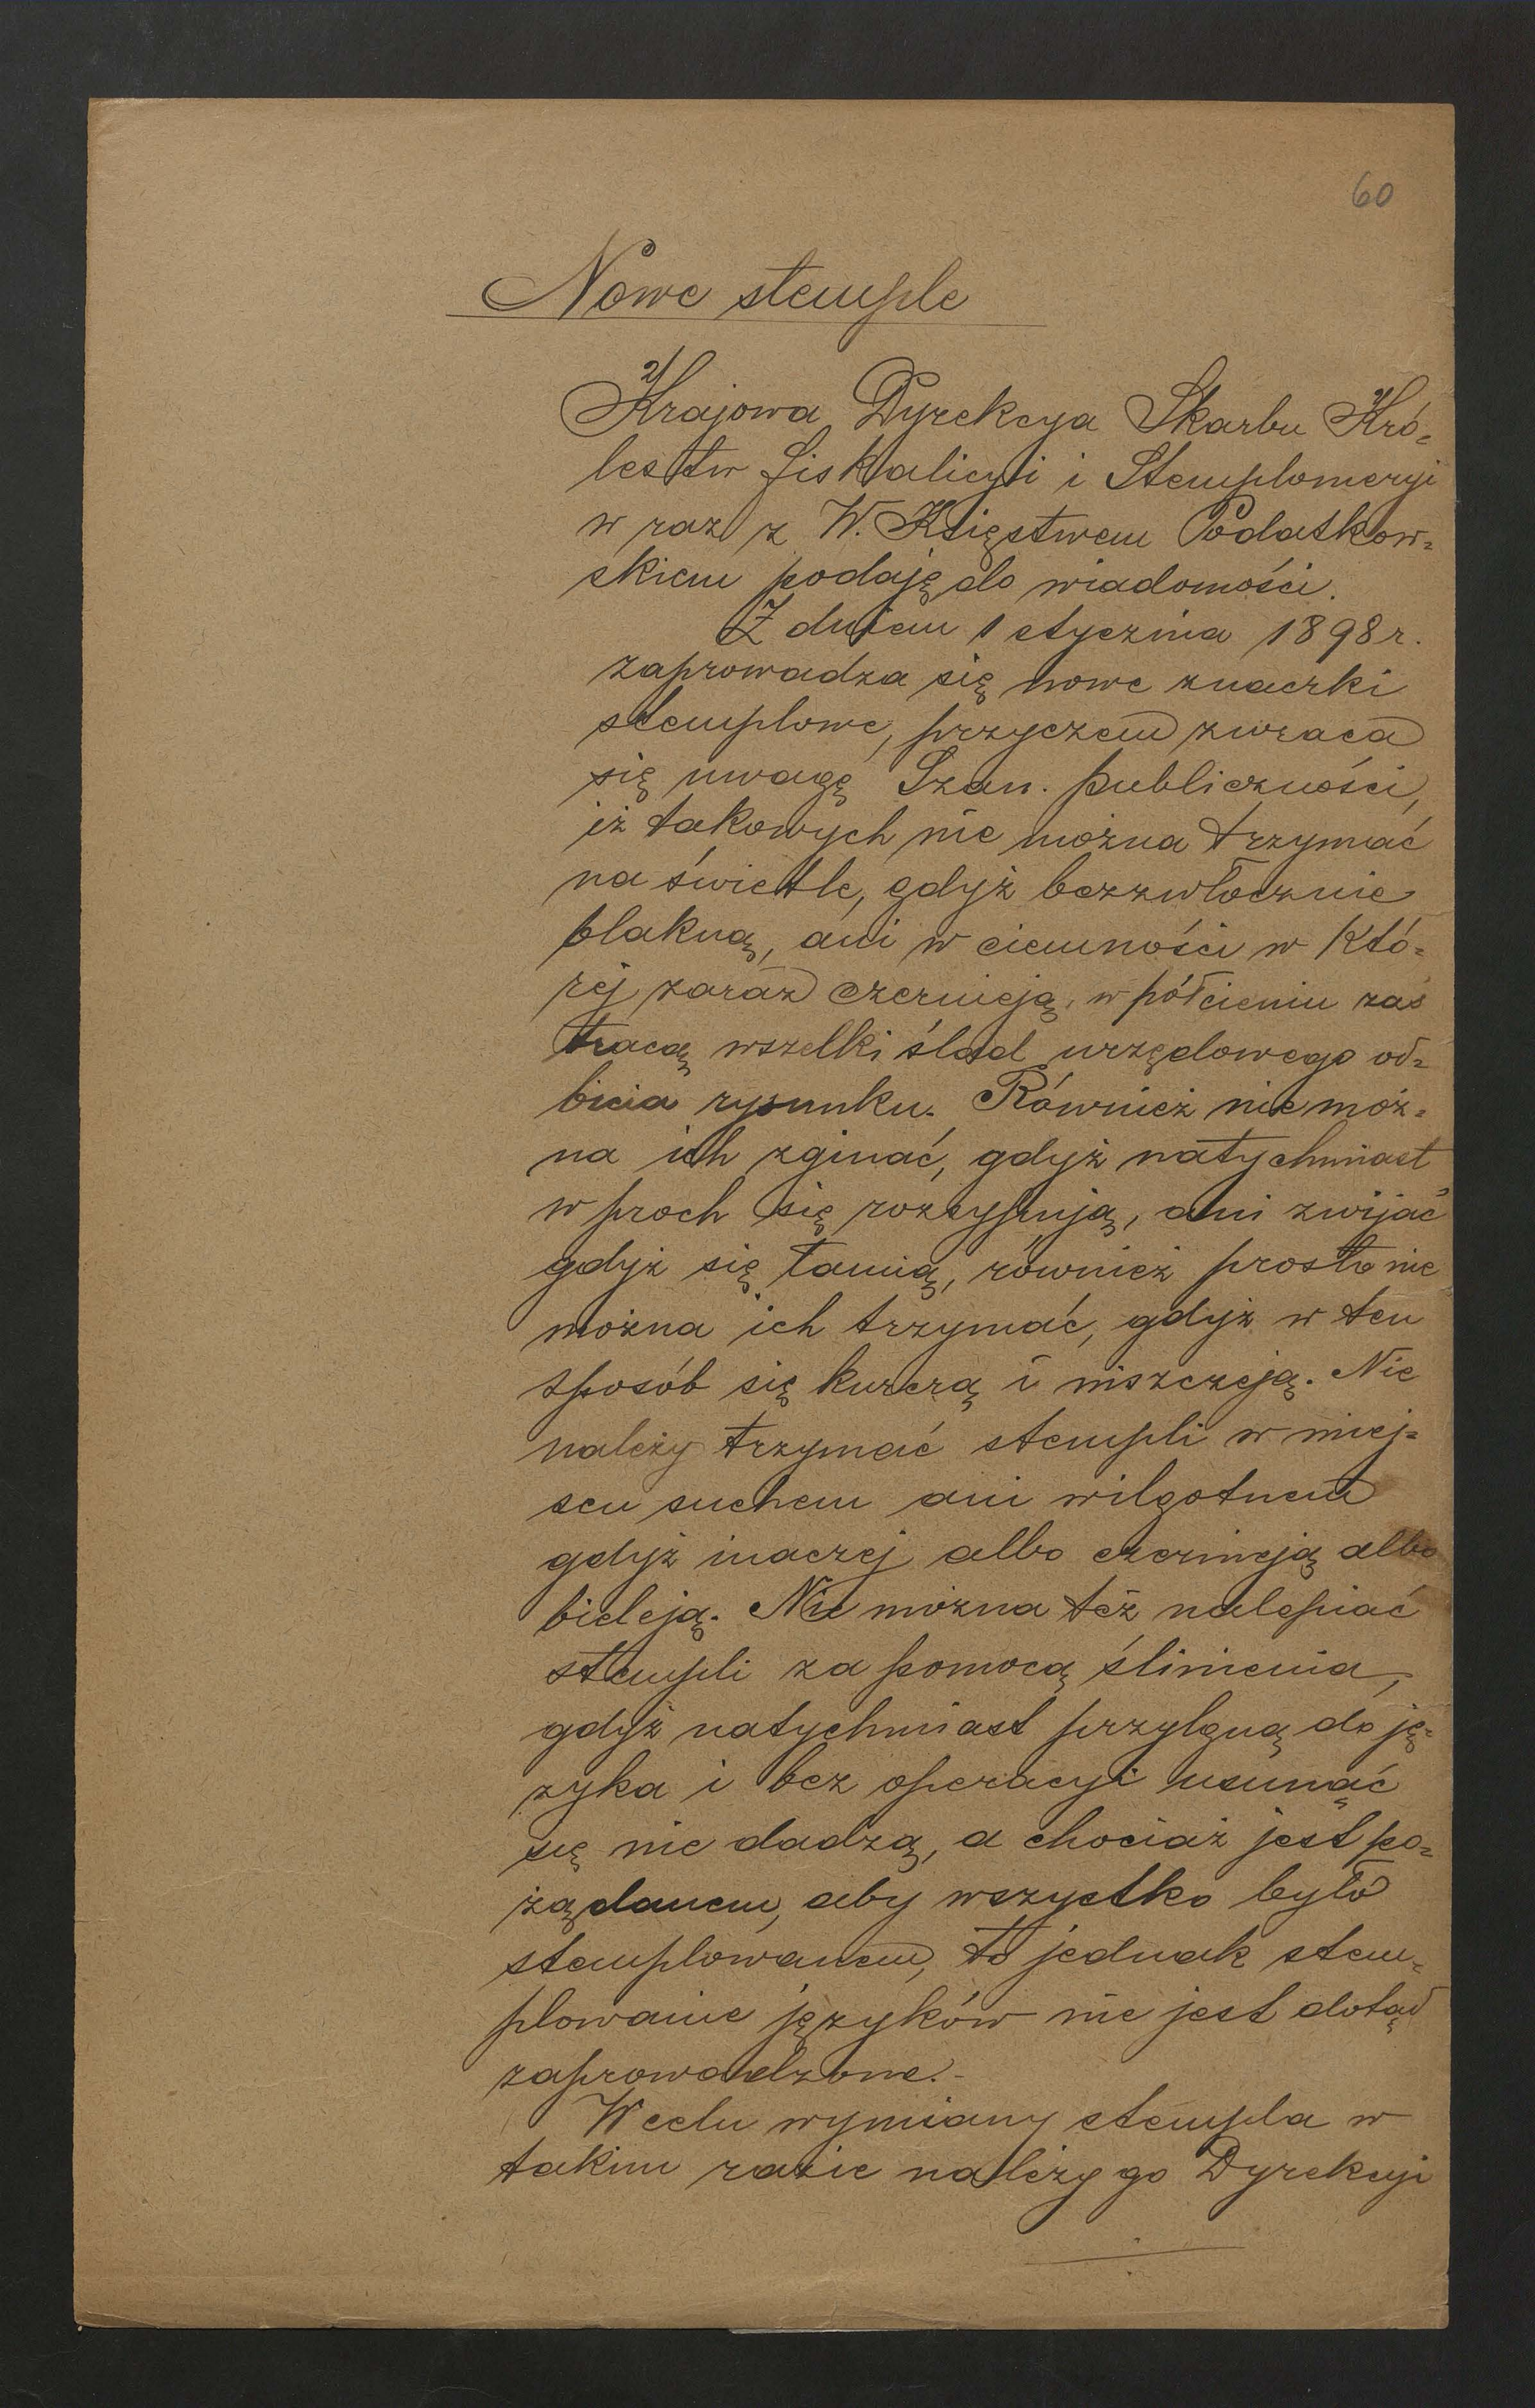 60
Nowe stemple
Krajowa Dyrekcya Skarbu Kró-
lestw fiskalicyi i Stemplomeryi
w raz z W. Księstwem Podatkow-
skiem podaję do wiadomości.
Z dniem 1 stycznia 1898 r.
zaprowadza się nowe znaczki
stemplowe, przyczem zwraca
się uwagę Szan. publiczności,
iż takowych nie można trzymać
na świetle, gdyż bezzwłocznie
blakną, ani w ciemności w któ-
rej zaraz czernieją, w półcieniu zaś
tracą wszelki ślad urzędowego od-
bicia rysunku. Również nie moż-
na ich zginać, gdyż natychmiast
w proch się rozsypują, ani zwijać
gdyż się łamią, również prosto nie
można ich trzymać, gdyż w ten
sposób się kurczą i niszczeją. Nie
należy trzymać stempli w miej-
scu suchem ani wilgotnem
gdyż inaczej albo czernieją albo
bieleją. Nie można też nalepiać
stempli za pomocą ślinienia,
gdyż natychmiast przylgną do ję-
zyka i bez operacyi usunąć
się nie dadzą, a chociaż jest po-
żądanem, aby wszystko było
stemplowanem, to jednak stem-
plowanie języków nie jest dotąd
zaprowadzone.-
W celu wymiany stempla w
takim razie należy go Dyrekcyi